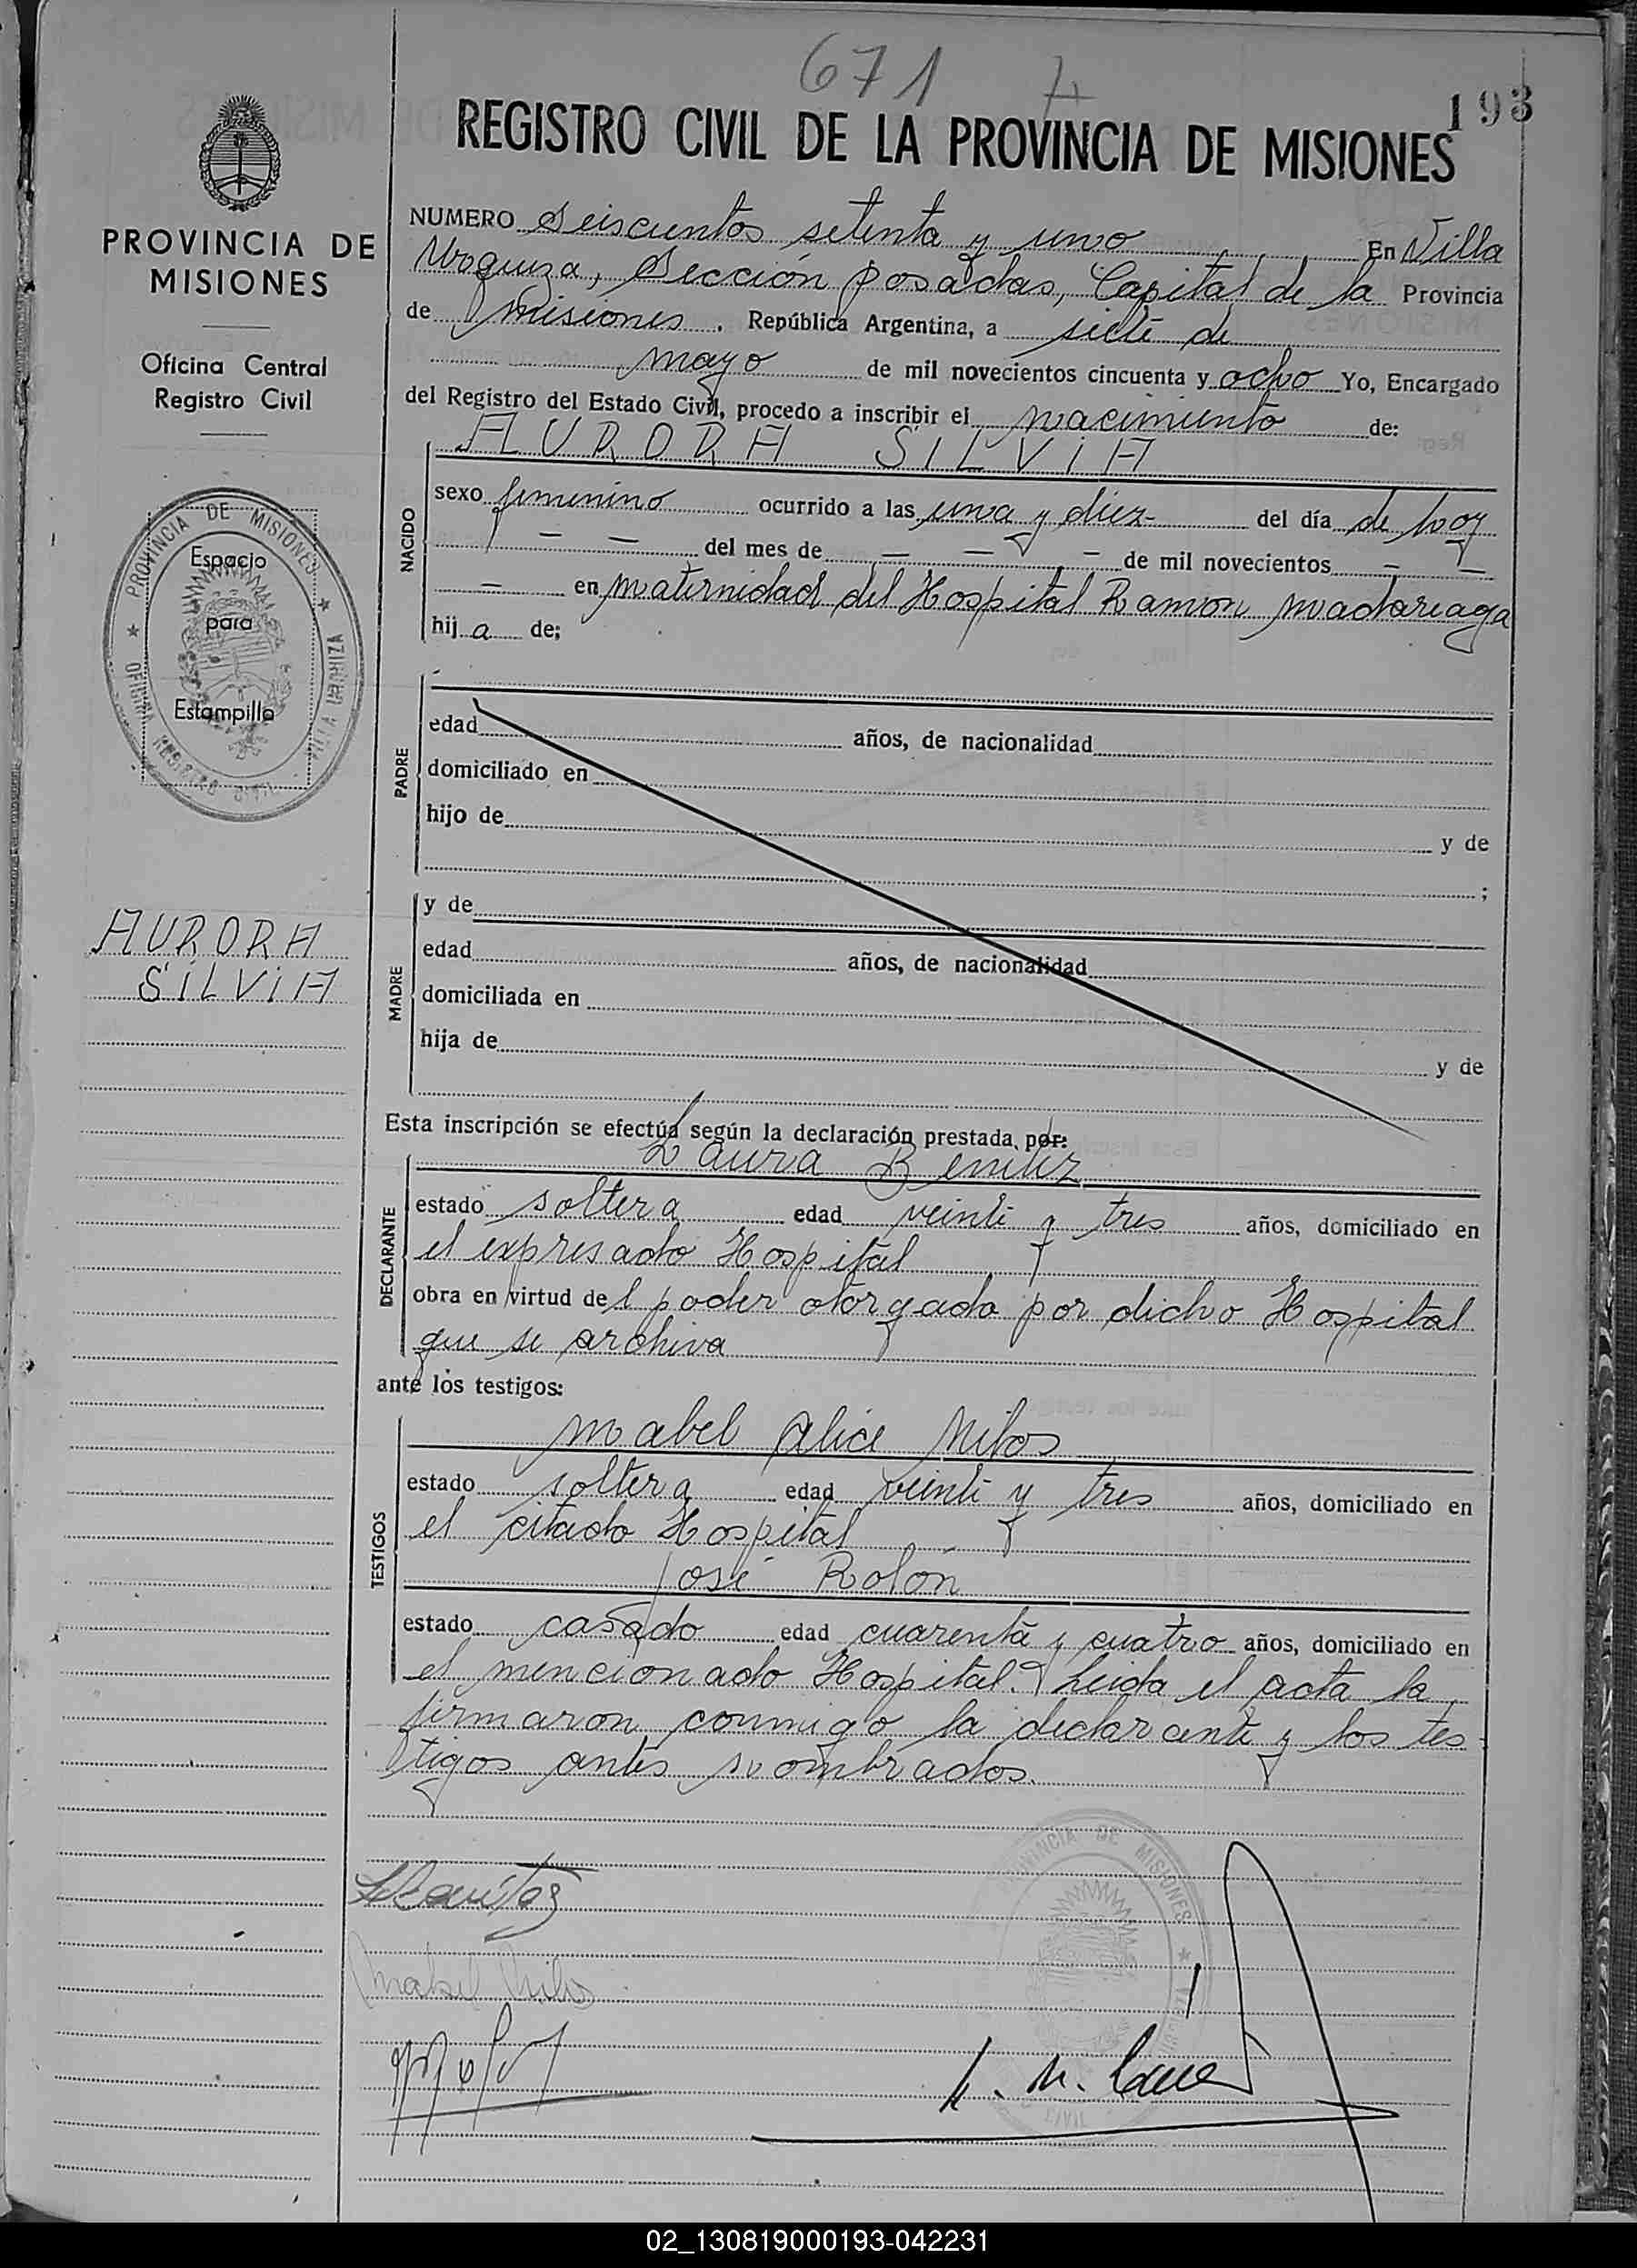 671
193
REGISTRO CIVIL DE LA PROVINCIA DE MISIONES
PROVINCIA DE
MISIONES
Oficina Central
Registro Civil
PROVINCIA DE MISIONES
Espacio
para
Estampilla
AURORA
SILVIA
NUMERO Seiscientos setenta y uno En Villa
Urquiza, Sección Posadas, Capital de la Provincia
de Misiones. República Argentina, a siete de
mayo de mil novecientos cincuenta y ocho Yo, Encargado
del Registro del Estado Civil, procedo a inscribir el nacimiento de:
AURORA SILVIA
NACIDO
sexo femenino ocurrido a las una y diez- del día de hoy
— — del mes de — — — de mil novecientos — —
— en maternidad del Hospital Ramon Madariaga
hij a de;
PADRE
edad años, de nacionalidad
domiciliado en
hijo de y de
;
MADRE
y de
edad años, de nacionalidad
domiciliada en
hija de y de
Esta inscripción se efectúa según la declaración prestada, por:
Laura Benitez
DECLARANTE
estado soltera edad veinti y tres años, domiciliado en
el expresado Hospital
obra en virtud de l poder otorgado por dicho Hospital
que se archiva
ante los testigos:
TESTIGOS
Mabel Alice
estado soltera edad veinti y tres años, domiciliado en
el citado Hospital
José Rolón
estado casado edad cuarenta y cuatro años, domiciliado en
el mencionado Hospital. Leida el acta la
firmaron conmigo la declarante y los tes
tigos antes nombrados.
PROVINCIA DE MISIONES
CIVIL
Mabel
02_130819000193-042231